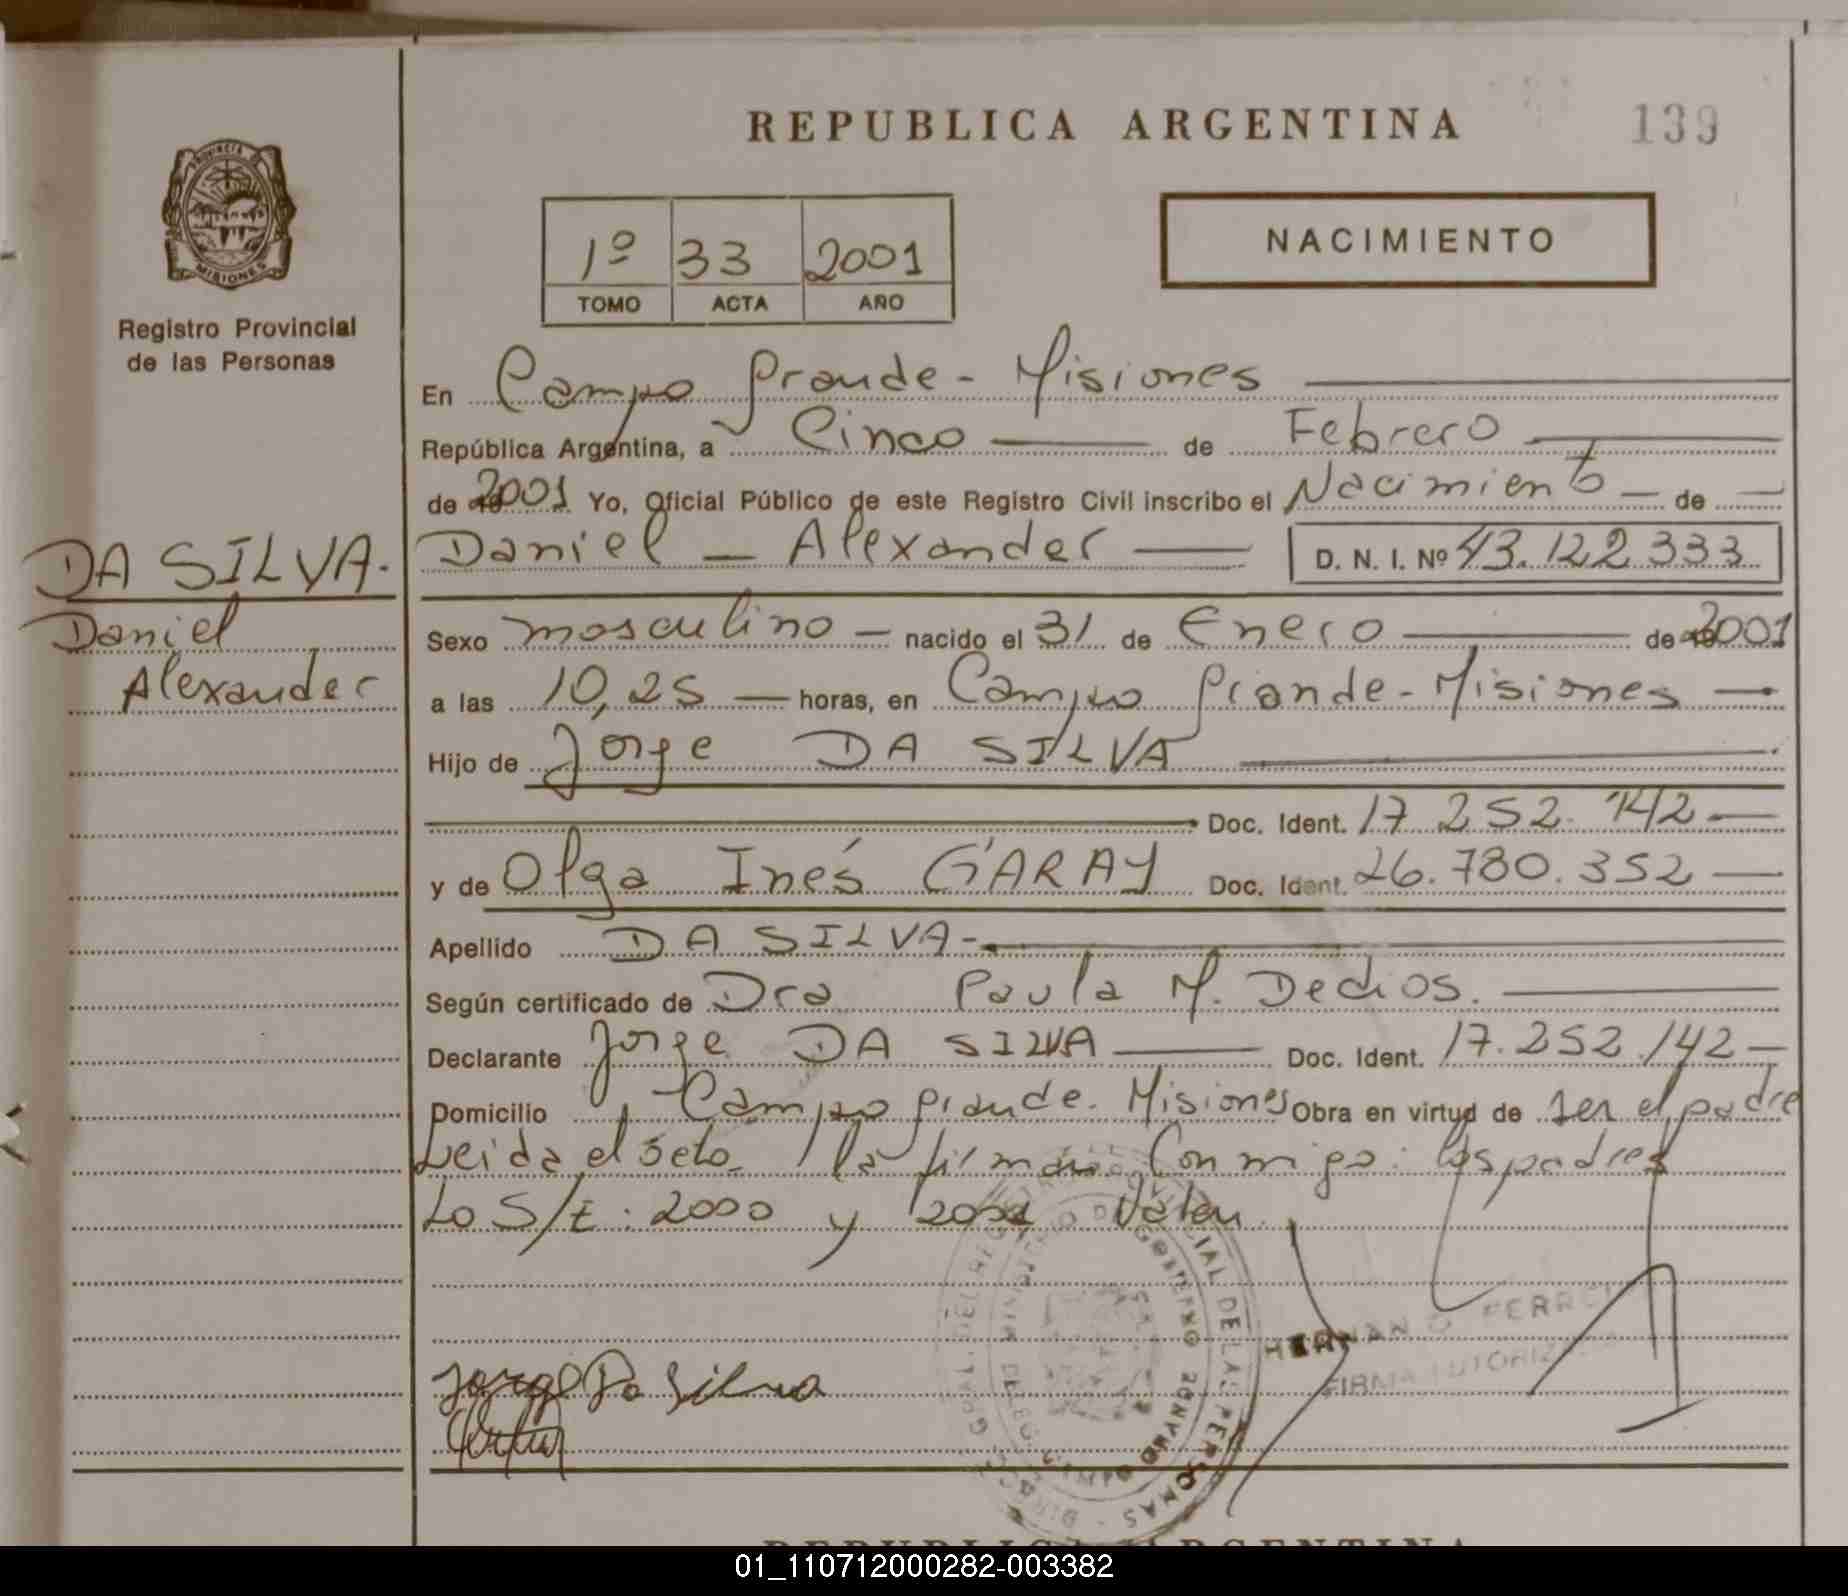 REPUBLICA ARGENTINA
139
PROVINCIA DE
MISIONES
Registro Provincial
de las Personas
1º 33 2001
TOMO ACTA AÑO
NACIMIENTO
En Campo Grande - Misiones
República Argentina, a Cinco de Febrero
de 2001 Yo, Oficial Público de este Registro Civil inscribo el Nacimiento de
DA SILVA.
Daniel
Alexander
Daniel Alexander D. N. I. Nº 43.122.333
Sexo masculino nacido el 31 de Enero de 2001
a las 10,25 horas, en Campo Grande - Misiones
Hijo de Jorge DA SILVA
Doc. Ident. 17.252.142
y de Olga Inés GARAY Doc. Ident. 26.780.352
Apellido DA SILVA
Según certificado de Dra Paula M. Dedios.
Declarante Jorge DA SILVA Doc. Ident. 17.252.142
Domicilio Campo Grande. Misiones Obra en virtud de ser el padre
Leida el acta, la firman Conmigo: los padres
Lo S/E: 2000 y 2001 Valen
HERNAN
FIRMA AUTORIZADA
Jorge Da Silva
REPUBLICA ARGENTINA
01_110712000282-003382